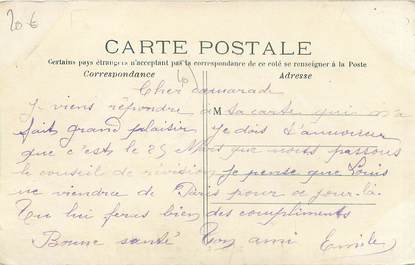 20 €
CARTE POSTALE
Certains pays étrangers n'acceptant pas la correspondance de ce coté se renseigner à la Poste
Correspondance Adresse
Cher camarad
Je viens répondre a M ta carte qui m'a
fait grand plaisir Je dois t'annoncer
que c'est le 25 Mars que nous passons
le conseil de révision je pense que Louis
ne viendra de Paris pour ce jour là.
Tu lui feras bien des compliments
Bonne santé Ton ami Emile